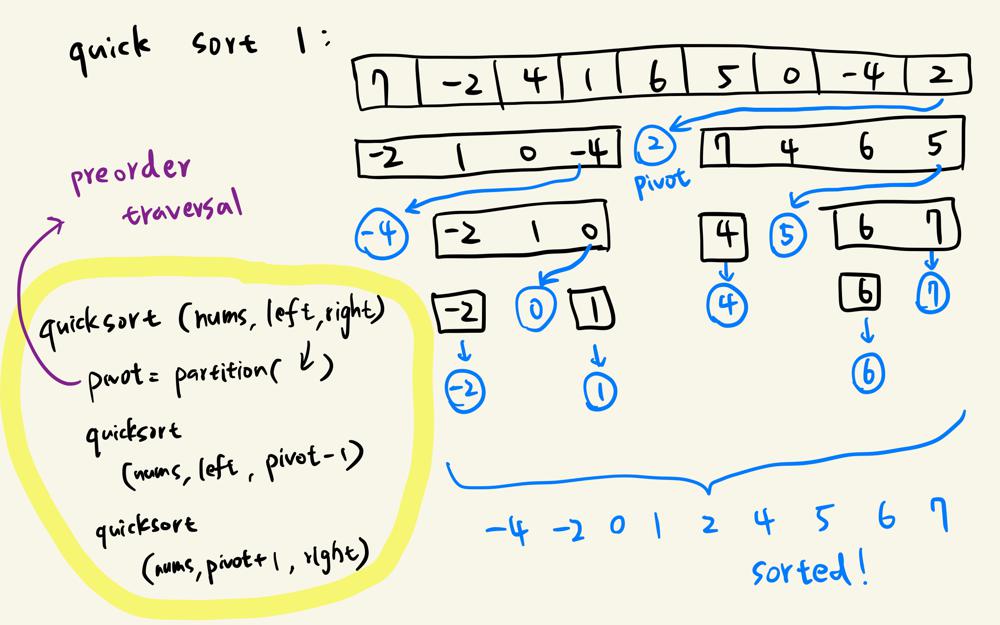 quick sort 1:
7 -2 4 1 6 5 0 -4 2
-2 1 0 -4 2 7 4 6 5
pivot
preorder
traversal
-4 -2 1 0 4 5 6 7
-2 0 1 4 6 7
-2 1 6
quicksort (nums, left, right)
pivot = partition( )
quicksort
(nums, left, pivot-1)
quicksort
(nums, pivot+1, right)
-4 -2 0 1 2 4 5 6 7
sorted!